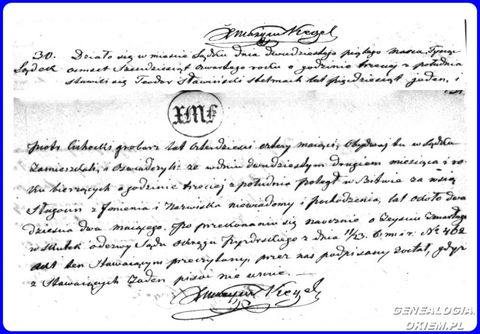 30. Działo się w mieście Lądku dnia dwudziestego piątego Marca Tysiąc
Lądek ośmset Sześćdziesiąt Czwartego roku o godzinie trzeciej z południa
stawili się Teodor Sławiński stelmach lat pięćdziesiąt jeden, i
XMK
Piotr Cichocki grobarz lat czterdzieści cztery mający, obydwaj tu w Lądku
zamieszkali, i oświadczyli: że w dniu dwudziestym drugim miesiąca i ro-
ku bieżących o godzinie trzeciej z południa poległ w Bitwie za wsią
z Imienia i Nazwiska niewiadomy i pochodzenia, lat około dwa
dzieścia dwa mający. Po przekonaniu się naocznie o Zejściu Zmarłego
w skutek odezwy Sądu okręgu Pyzdrskiego z dnia 11/23 b. m. i r. No 402
akt ten Stawającym przeczytany, przez nas podpisany został, gdyż
z Stawających Żaden pisać nie umie.
GENEALOGIA
OKIEM.PL